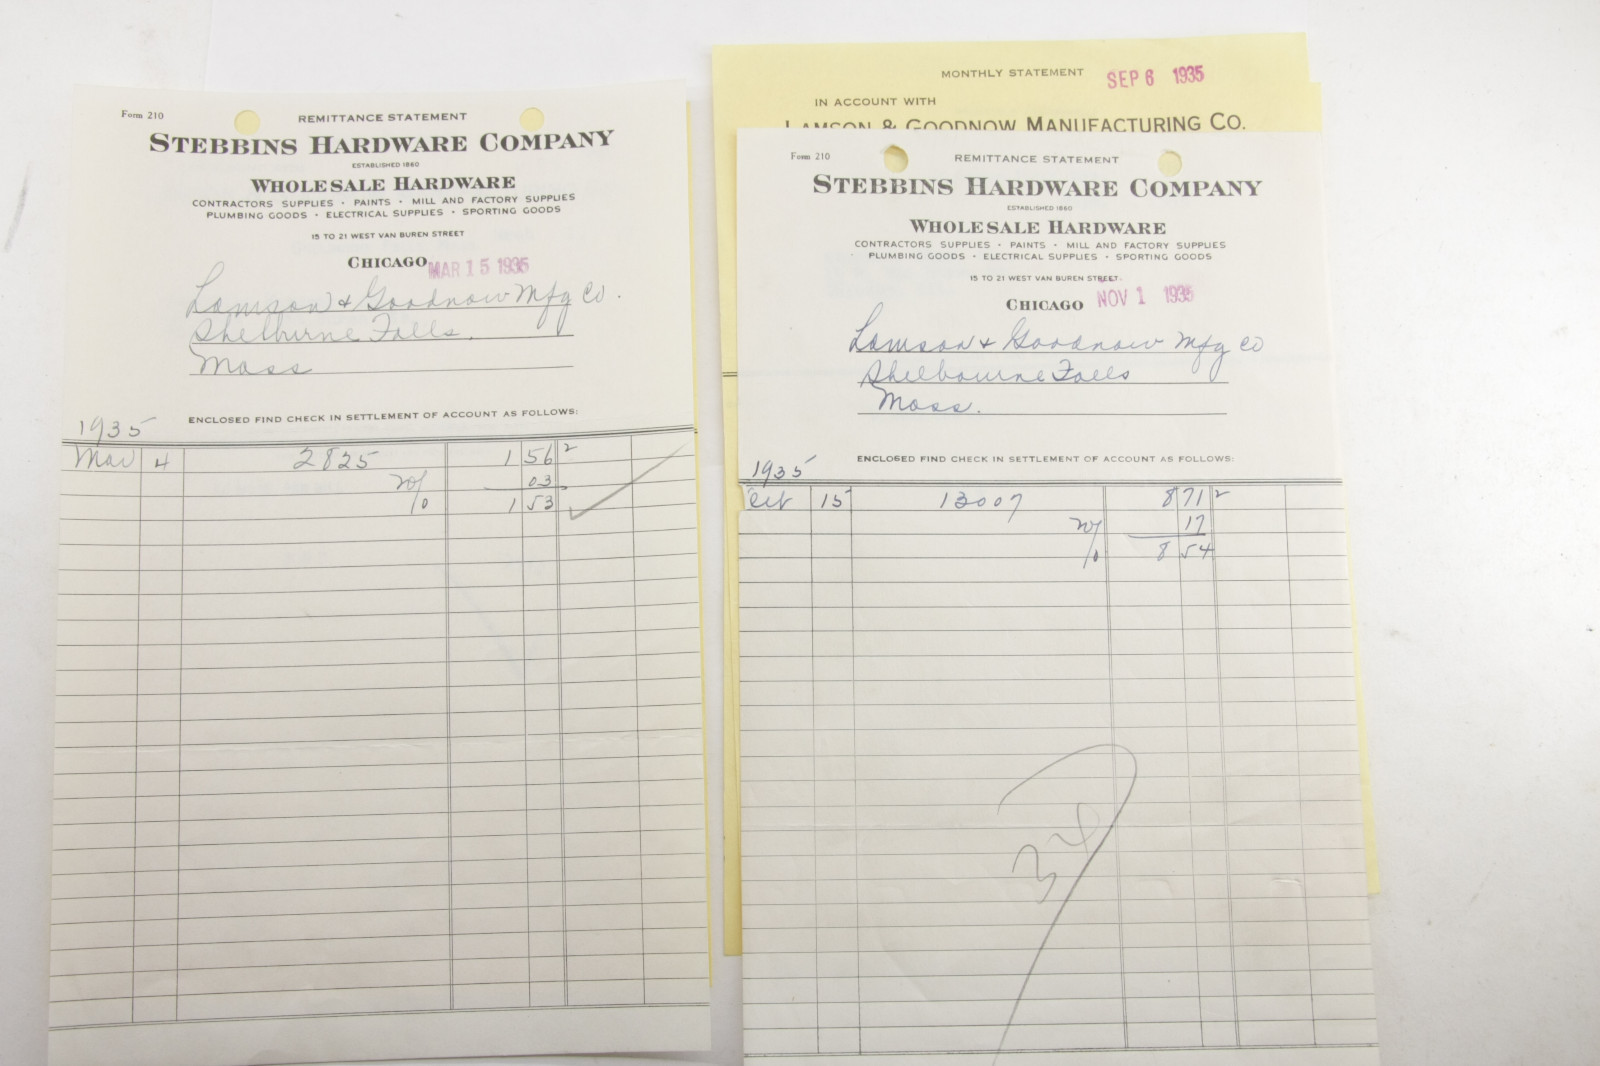 Form 210
REMITTANCE STATEMENT
STEBBINS HARDWARE COMPANY
ESTABLISHED 1860
WHOLESALE HARDWARE
CONTRACTORS SUPPLIES · PAINTS · MILL AND FACTORY SUPPLIES
PLUMBING GOODS · ELECTRICAL SUPPLIES · SPORTING GOODS
15 TO 21 WEST VAN BUREN STREET
CHICAGO MAR 15 1935
Lamson & Goodnow Mfg Co.
Shelburne Falls.
Mass
ENCLOSED FIND CHECK IN SETTLEMENT OF ACCOUNT AS FOLLOWS:
1935
Mar 4 2825 1 56 2
03
1 53
MONTHLY STATEMENT SEP 6 1935
IN ACCOUNT WITH
LAMSON & GOODNOW MANUFACTURING CO.
Form 210
REMITTANCE STATEMENT
STEBBINS HARDWARE COMPANY
ESTABLISHED 1860
WHOLESALE HARDWARE
CONTRACTORS SUPPLIES · PAINTS · MILL AND FACTORY SUPPLIES
PLUMBING GOODS · ELECTRICAL SUPPLIES · SPORTING GOODS
15 TO 21 WEST VAN BUREN STREET.
CHICAGO NOV 1 1935
Lamson & Goodnow Mfg Co
Shelbourne Falls
Mass.
ENCLOSED FIND CHECK IN SETTLEMENT OF ACCOUNT AS FOLLOWS:
1935
Oct 15 13007 8 71 2
17
8 54